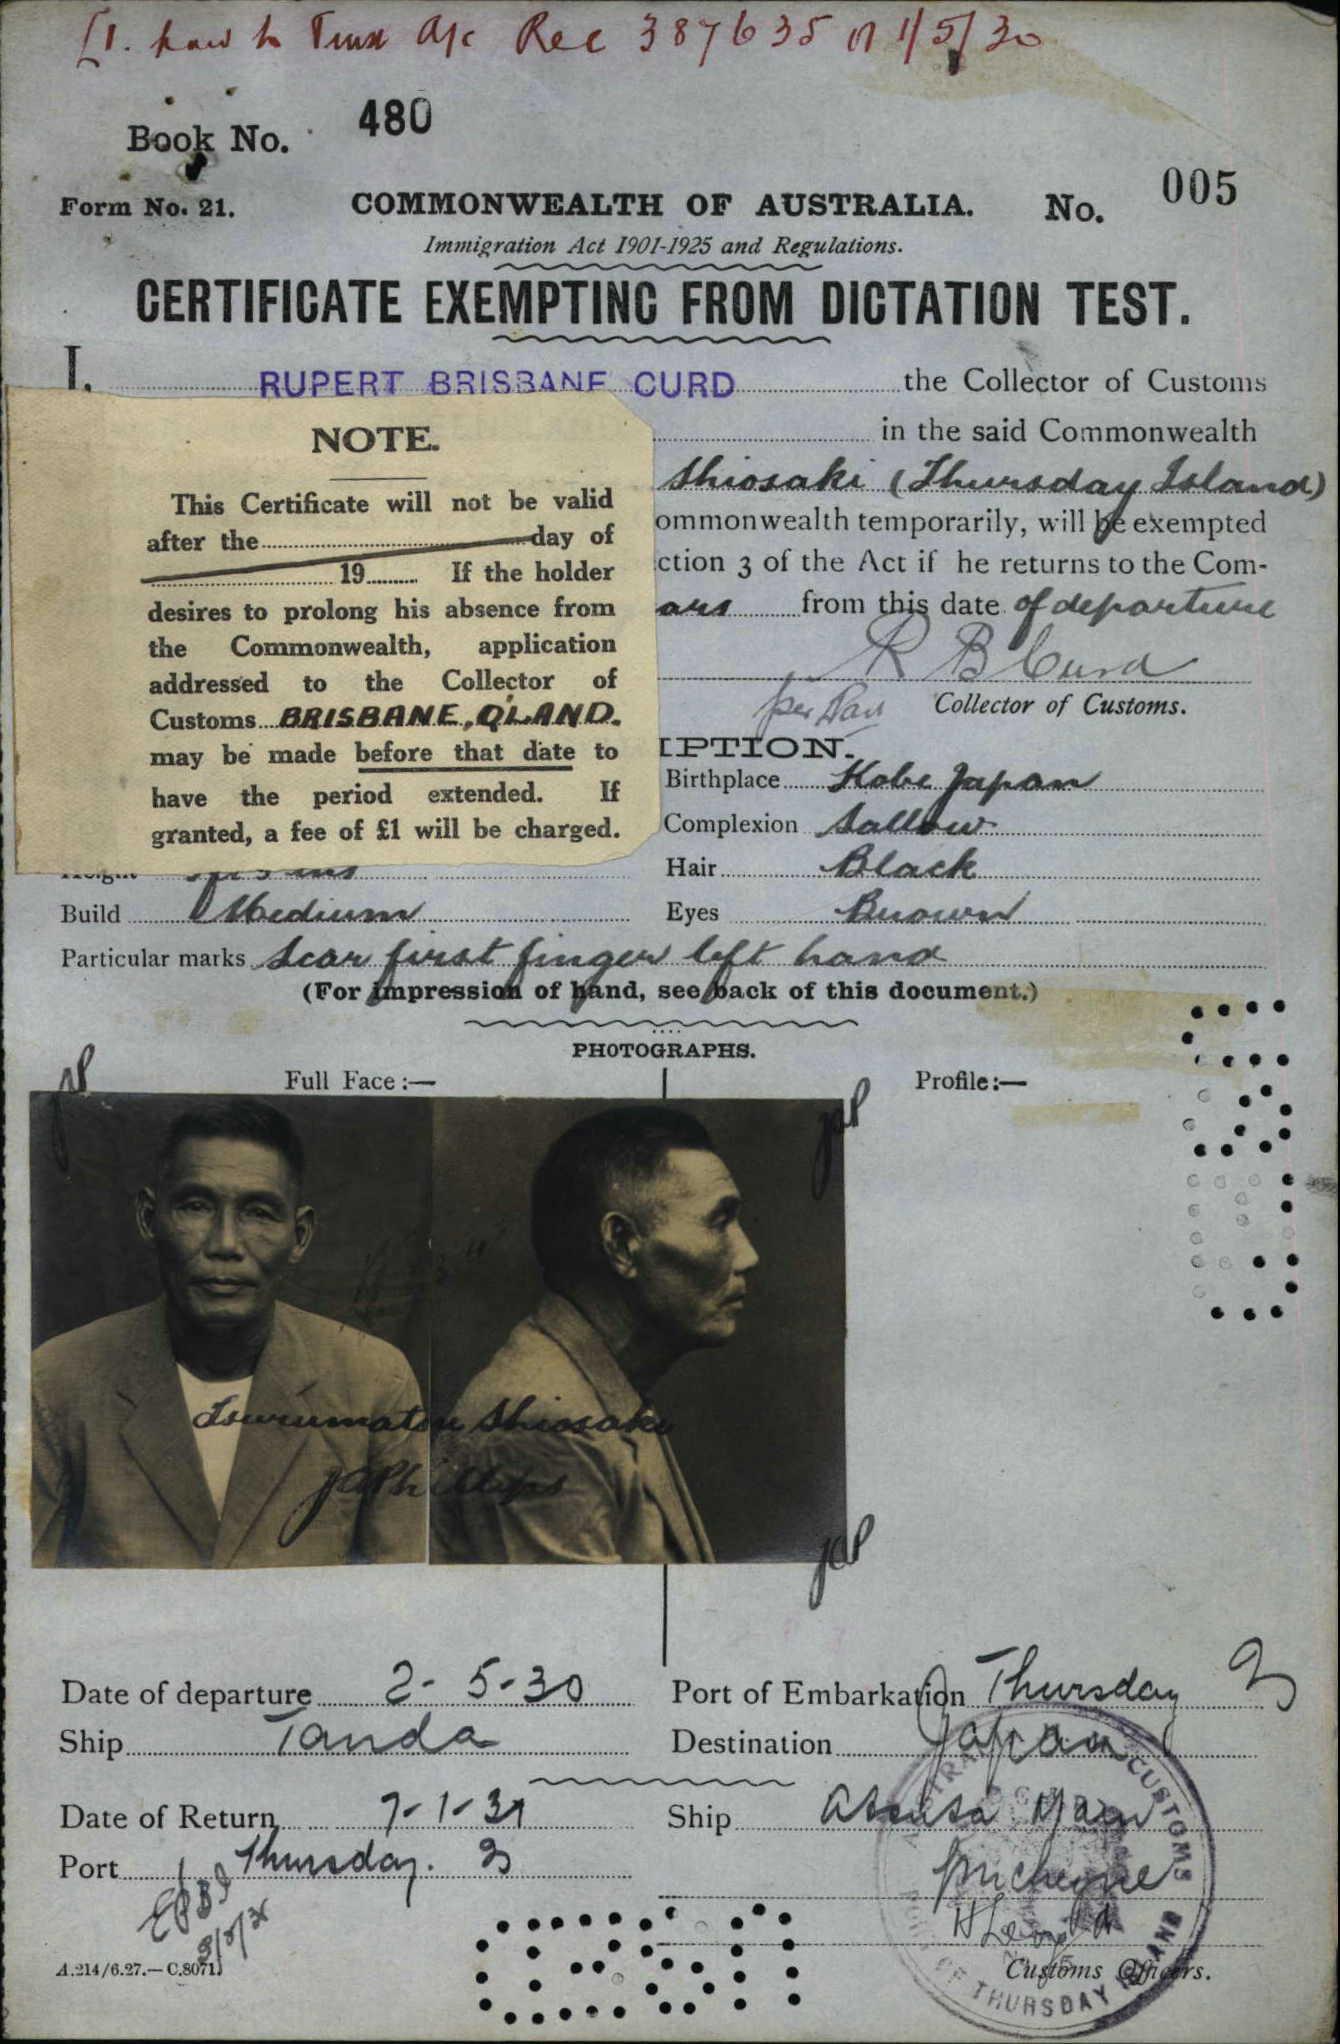 Rec 387635 of 1/5/30
Book No. 480
Form No. 21. COMMONWEALTH OF AUSTRALIA. No. 005
Immigration Act 1901-1925 and Regulations.
CERTIFICATE EXEMPTING FROM DICTATION TEST.
I, RUPERT BRISBANE CURD the Collector of Customs
in the said Commonwealth
Shiosaki (Thursday Island)
ommonwealth temporarily, will be exempted
ction 3 of the Act if he returns to the Com-
ars from this date of departure
R B Curd
per
Collector of Customs.
NOTE.
This Certificate will not be valid
after the day of
19 If the holder
desires to prolong his absence from
the Commonwealth, application
addressed to the Collector of
Customs BRISBANE, Q'LAND.
may be made before that date to
have the period extended. If
granted, a fee of £1 will be charged.
IPTION.
Birthplace Kobe Japan
Complexion Sallow
Height ins Hair Black
Build Medium Eyes Brown
Particular marks Scar first finger left hand
(For impression of hand, see back of this document.)
PHOTOGRAPHS.
Full Face:— Profile:—
JAP
JAP
Tsurumatsu Shiosaki
JAPhillips
JAP
Date of departure 2-5-30 Port of Embarkation Thursday I
Ship Tanda Destination Japan
Date of Return 7-1-31 Ship Atsuta Maru
Port Thursday. I
Customs Officers.
A.214/6.27.—C.8071
CUSTOMS
PORT OF THURSDAY ISLAND